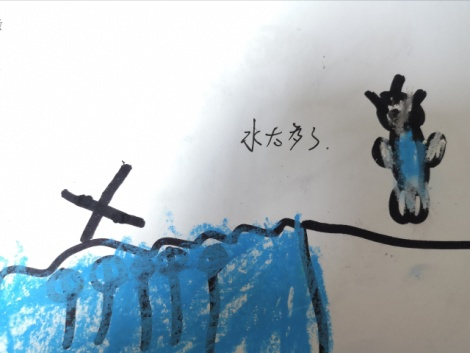 水太多了.